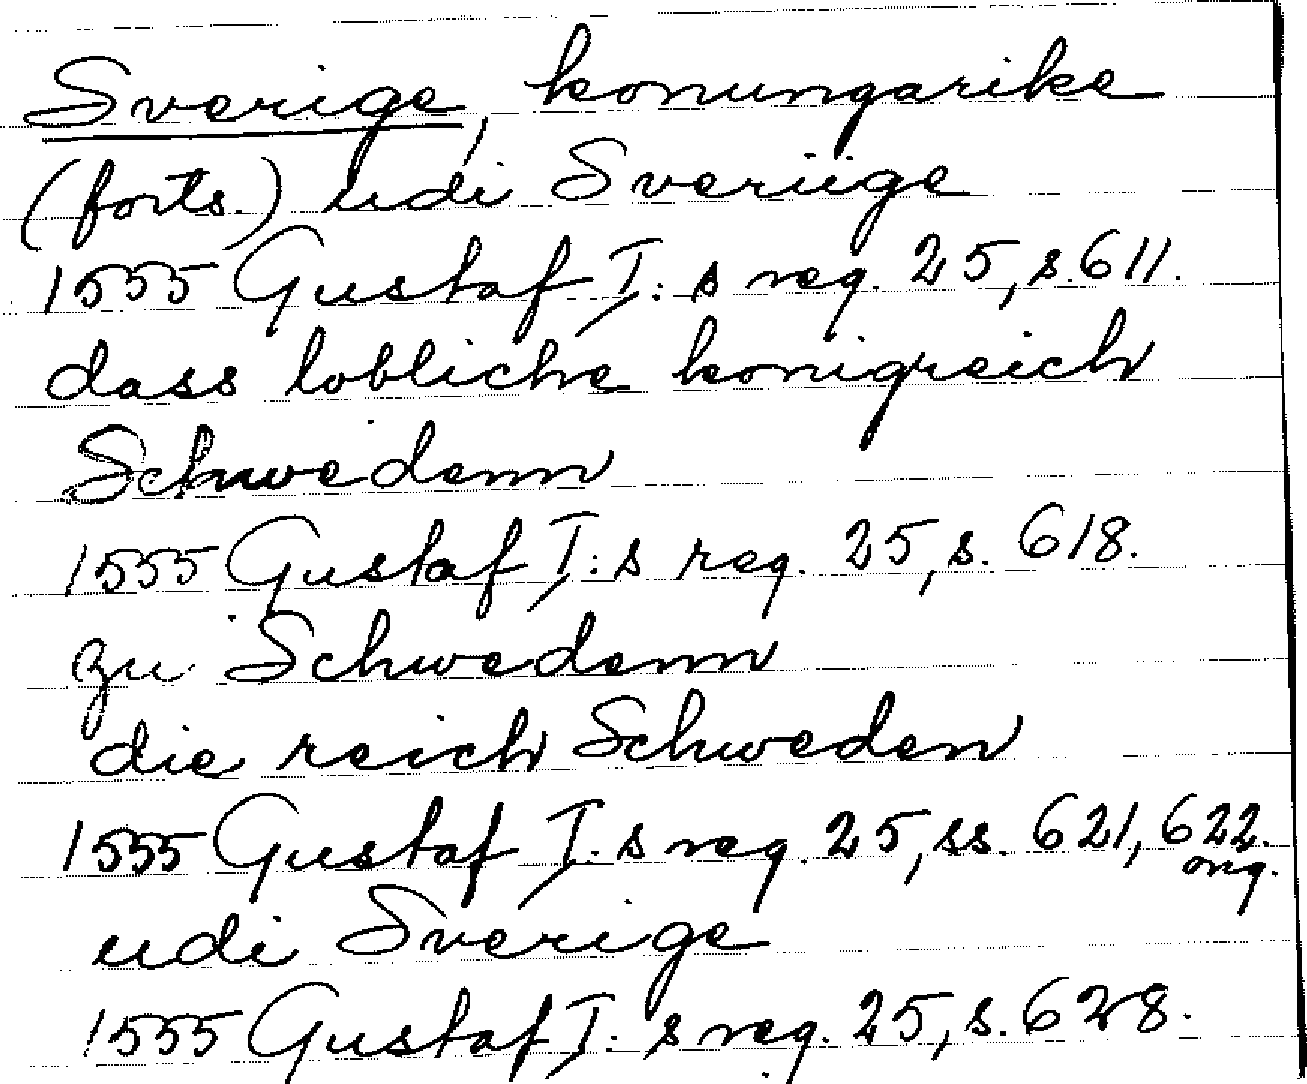 Sverige, konungarike
(forts.) udi Sveriige
1555 Gustaf I:s reg. 25, s. 611.
dass lobliche konigreich
Schwedenn
1555 Gustaf I:s reg. 25, s. 618.
zu Schwedenn
die reich Schweden
1555 Gustaf I:s reg. 25, ss. 621, 622.
orig.
udi Sverige
1555 Gustaf I:s reg. 25, s. 628.